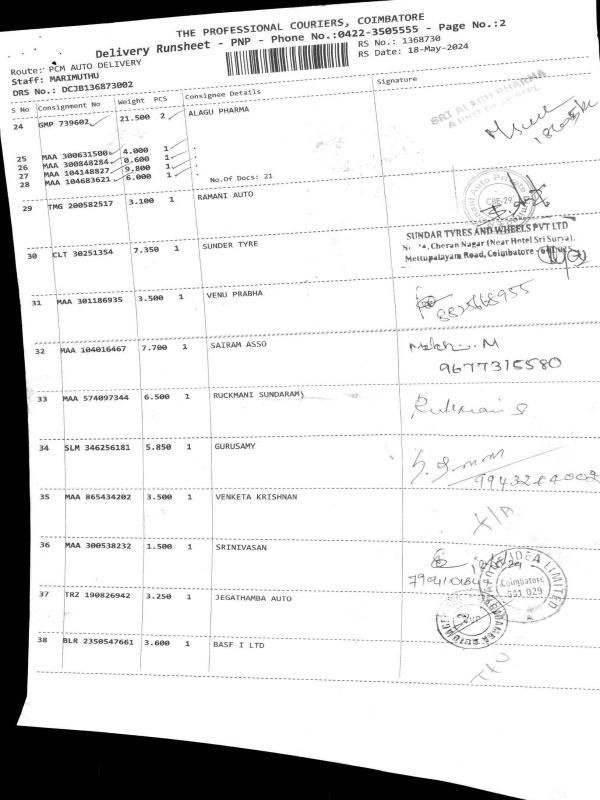 THE PROFESSIONAL COURIERS, COIMBATORE
Delivery Runsheet - PNP - Phone No.:0422-3505555 - Page No.:2
Route: PCM AUTO DELIVERY
RS No.: 1368730
Staff: MARIMUTHU
RS Date: 18-May-2024
DRS No.: DCJB136873002
S No Consignment No Weight PCS Consignee Details Signature
24 GMP 739602 21.500 2 ALAGU PHARMA
SRI ALAGU PHARMA
25 MAA 300631500 4.000 1 .
26 MAA 300848284 0.600 1 .
27 MAA 104148827 9.800 1 .
28 MAA 104683621 6.000 1 .
No.Of Docs: 21
29 TMG 200582517 3.100 1 RAMANI AUTO
CBE-29
30 CLT 30251354 7.350 1 SUNDER TYRE
SUNDAR TYRES AND WHEELS PVT LTD
Cheran Nagar (Near Hotel Sri Surya),
Mettupalayam Road, Coimbatore
31 MAA 301186935 3.500 1 VENU PRABHA
32 MAA 104016467 7.700 1 SAIRAM ASSO
M
9677315580
33 MAA 574097344 6.500 1 RUCKMANI SUNDARAM)
34 SLM 346256181 5.850 1 GURUSAMY
35 MAA 865434202 3.500 1 VENKETA KRISHNAN
36 MAA 300538232 1.500 1 SRINIVASAN
IDEA LIMITED
Coimbatore
641 029
37 TRZ 190826942 3.250 1 JEGATHAMBA AUTO
38 BLR 2350547661 3.600 1 BASF I LTD